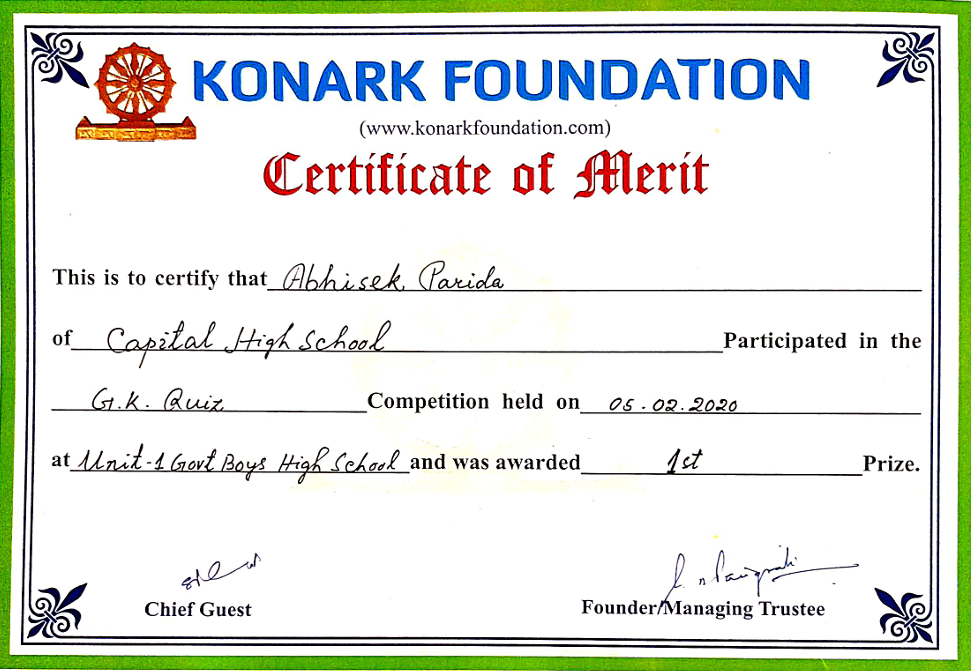 KONARK FOUNDATION
(www.konarkfoundation.com)
Certificate of Merit
This is to certify that Abhisek Parida
of Capital High School Participated in the
G.K. Quiz Competition held on 05.02.2020
at Unit-1 Govt Boys High School and was awarded 1st Prize.
Chief Guest Founder/Managing Trustee